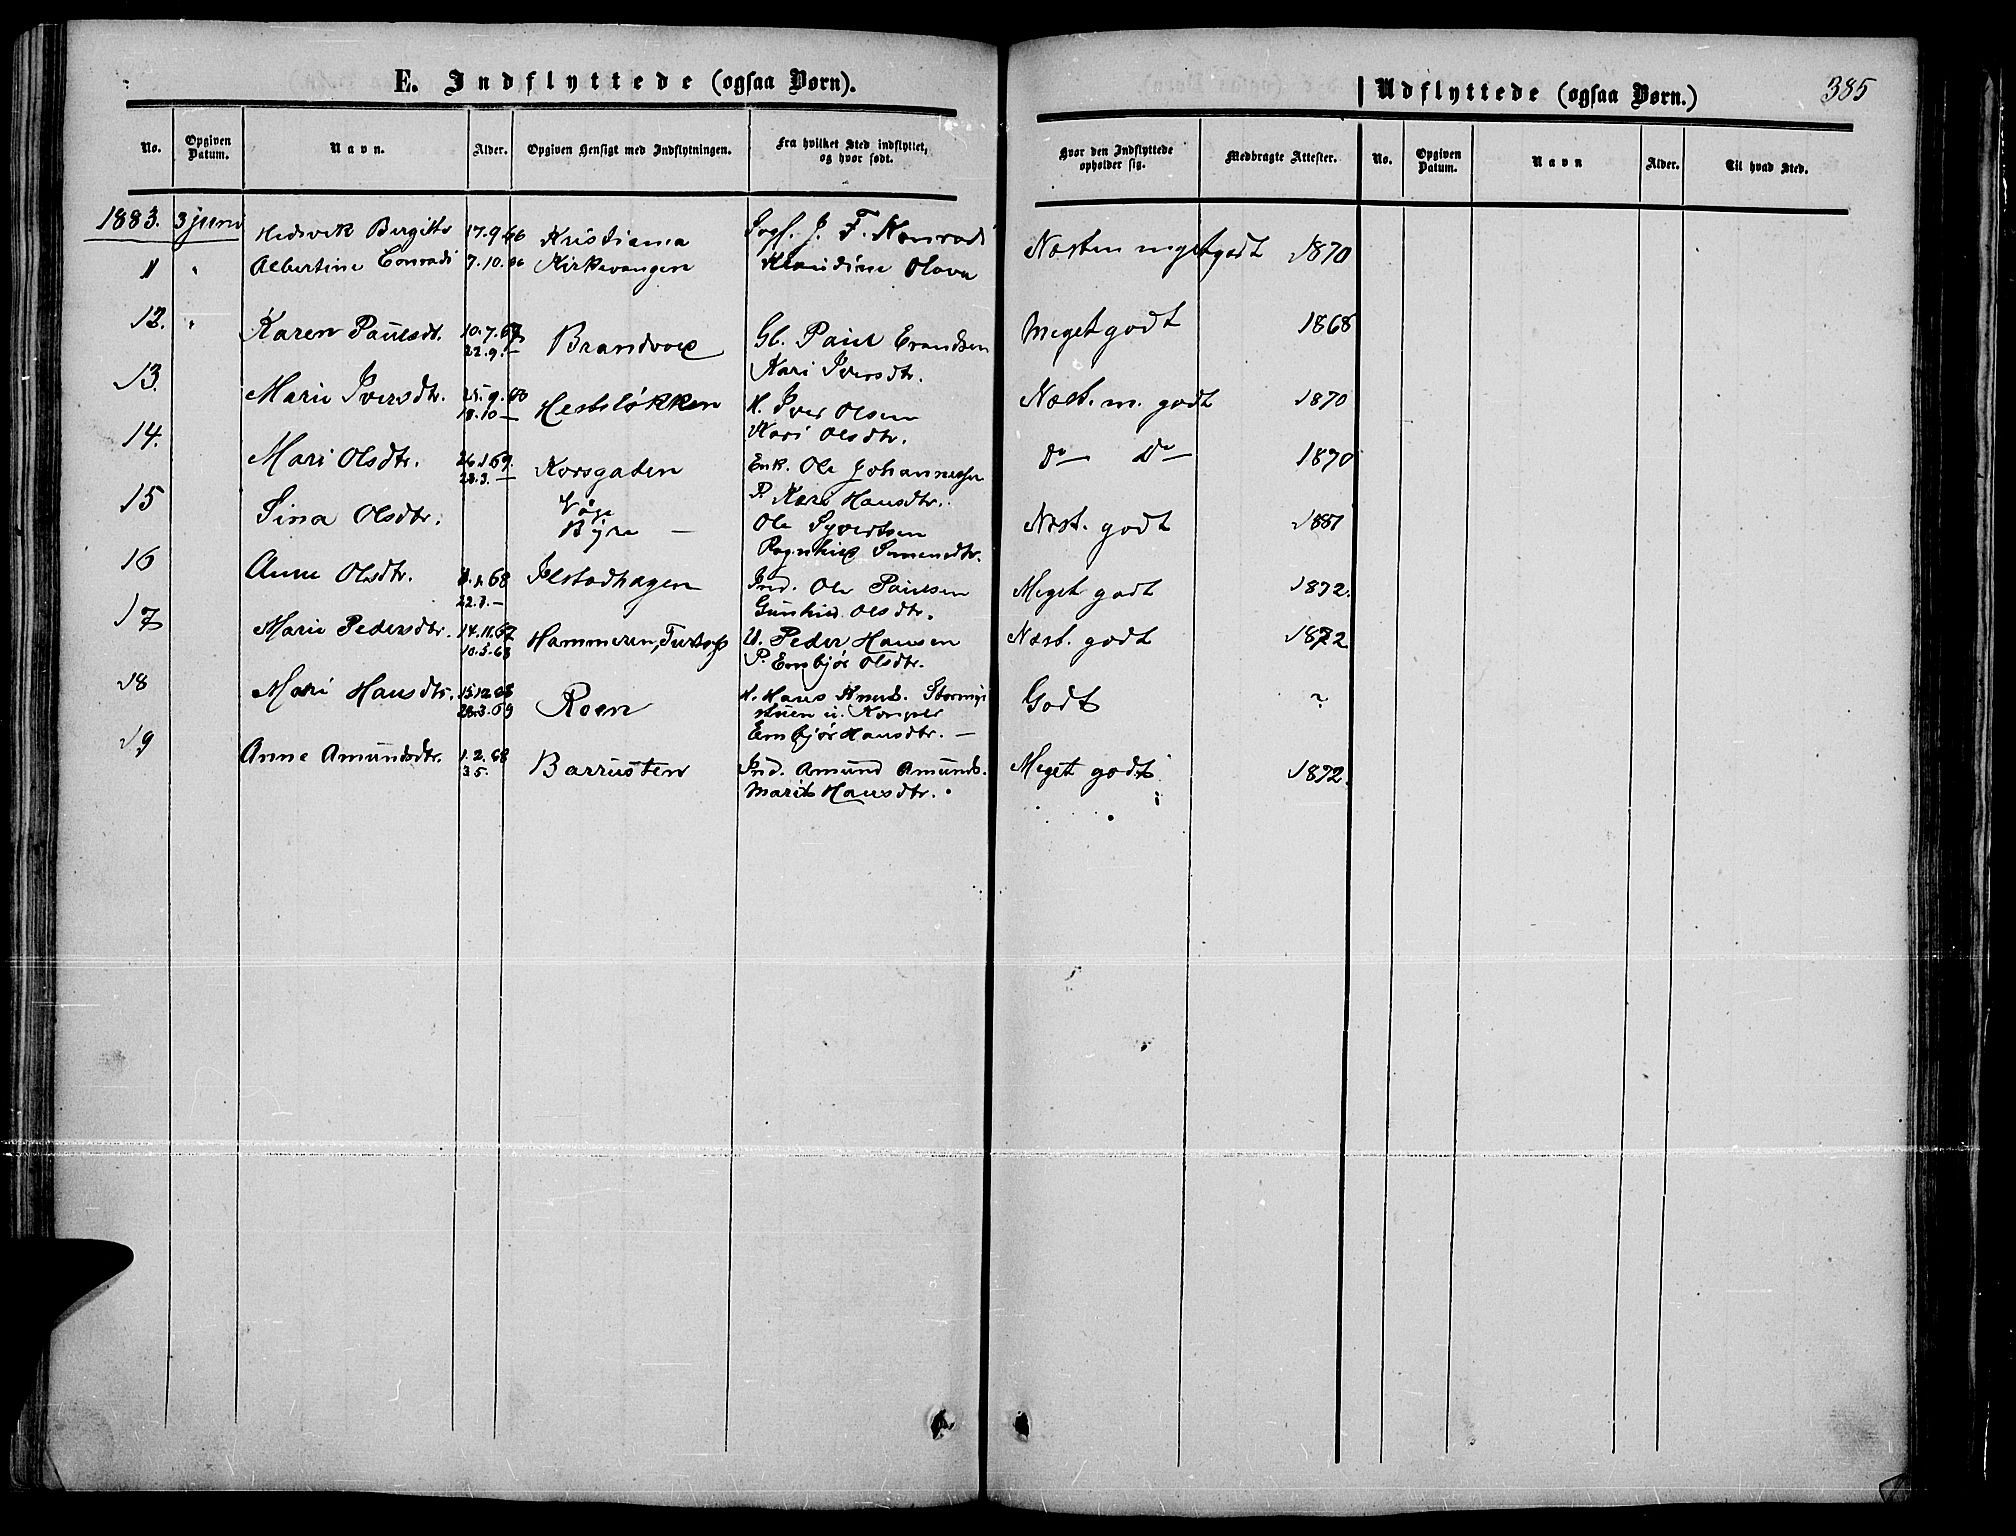 E. Indflyttede (ogsaa Børn).
Udflyttede (ogsaa Børn.)
385
No. Opgiven Datum. Navn. Alder. Opgiven Hensigt med Indflytningen. Fra hvilket Sted indflyttet, og hvor født. Hvor den Indflyttede opholder sig. Medbragte Attester. No. Opgiven Datum. Navn Alder. Til hvad Sted.
1883. 3 juni Hedevik Birgitte 17.9.66 Kristiania Sogf. J. F. Konradi Næsten meget godt 1870
11 " Albertine Conradi 7.10.66 Kirkevangen Klaudine Olava
12. " Karen Paulsdt. 10.7.67 Brandvol Gb. Paul Erandsen Meget godt 1868
22.9.— Kari Iversdtr.
13. Marie Iversdtr. 25.9. Hesteløkken H. Iver Olsen Næst. m. godt 1870
18.10— Kari Olsdtr.
14. Mari Olsdtr. 26.1.69. Korsgaden Enk. Ole Johannessen Do Do 1870
28.3.— P. Kari Hansdtr.
15 Sina Olsdtr. Våge Ole Syvertsen Næst. godt 1881
Byre — Ragnhild Simensdtr.
16 Anne Olsdtr. 68 Ilstadhagen Ind. Ole Paulsen Meget godt 1872.
22.3.— Gunhild Olsdtr.
17 Marie Pedersdtr. 14.11.67 Hammeren, U. Peder Hansen Næst. godt 1872
10.5.68 P. Embjør Olsdtr.
18 Mari Hansdtr. 15.12.68 Roen H. Hans Knuds. Godt ?
28.3.69 stuen u.
Embjør Hansdtr. —
19 Anne Amundsdtr. 1.2.68 Barrusten Ind. Amund Amunds. Meget godt 1872.
3.5. Marit Hansdtr.